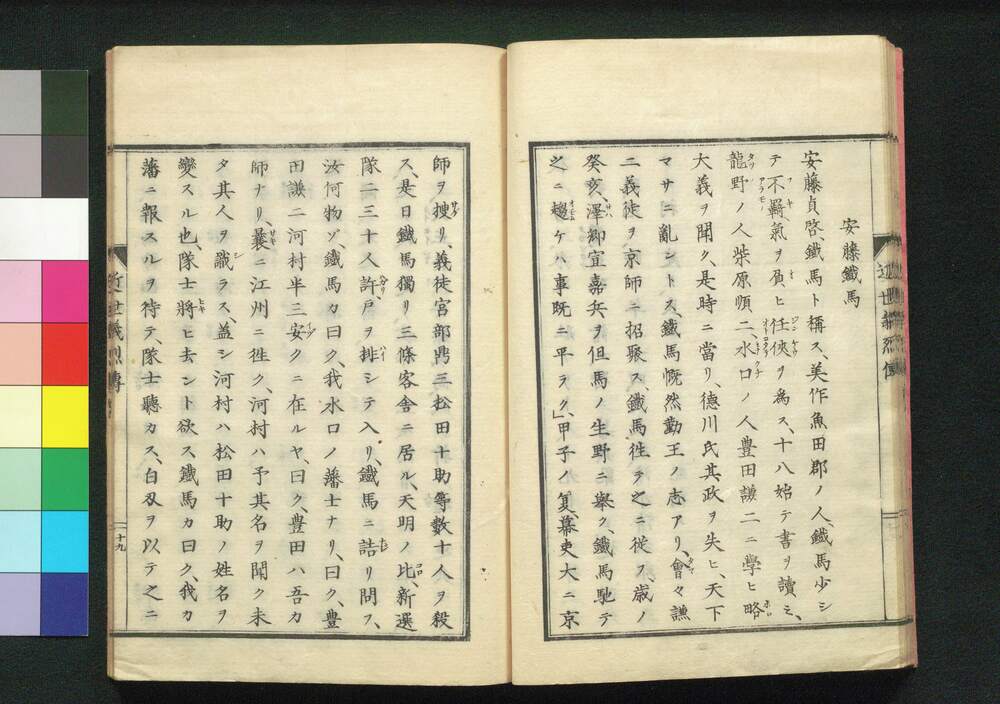 安藤鐵馬
安藤貞啓鐵馬ト稱ス、美作魚田郡ノ人、鐵馬少シ
テ不羈氣ヲ負ヒ任俠ヲ為ス、十八始テ書ヲ讀ミ、
龍野ノ人柴原順二、水口ノ人豊田謙二ニ學ヒ略
大義ヲ聞ク、是時ニ當リ、德川氏其政ヲ失ヒ、天下
マサニ亂ントス、鐵馬慨然勤王ノ志アリ、會々謙
二義徒ヲ京師ニ招聚ス、鐵馬徃テ之ニ従フ、歳ノ
癸亥、澤卿宣嘉兵ヲ但馬ノ生野ニ擧ク、鐵馬馳テ
之ニ趨ケハ事既ニ平ラク、」甲子ノ夏、幕吏大ニ京
師ヲ捜リ、義徒宮部鼎三松田十助等數十人ヲ殺
ス、是日鐵馬獨リ三條客舎ニ居ル、天明ノ比、新選
隊二三十人許、戸ヲ排シテ入リ、鐵馬ニ詰リ問フ、
汝何物ソ、鐵馬カ曰ク、我水口ノ藩士ナリ、曰ク、豊
田謙二河村半三安クニ在ルヤ、曰ク、豊田ハ吾カ
師ナリ、曩ニ江州ニ徃ク、河村ハ予其名ヲ聞ク未
タ其人ヲ識ラス、蓋シ河村ハ松田十助ノ姓名ヲ
變スル也、隊士將ヒ去ント欲ス鐵馬カ曰ク、我カ
藩ニ報スルヲ待テ、隊士聽カス、白刄ヲ以テ之ニ
近世義烈傳
二十九